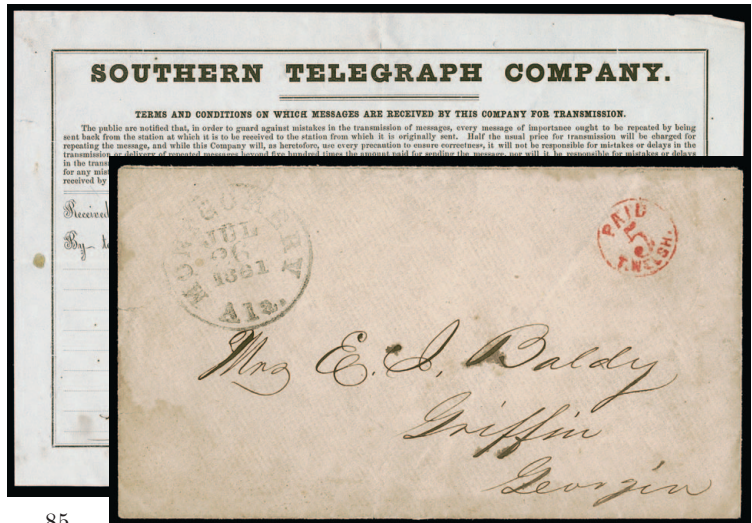 SOUTHERN TELEGRAPH COMPANY.
TERMS AND CONDITIONS ON WHICH MESSAGES ARE RECEIVED BY THIS COMPANY FOR TRANSMISSION.
The public are notified that, in order to guard against mistakes in the transmission of messages, every message of importance ought to be repeated by being
sent back from the station at which it is to be received to the station from which it is originally sent. Half the usual price for transmission will be charged for
repeating the message, and while this Company will, as heretofore, use every precaution to ensure correctness, it will not be responsible for mistakes or delays in the
transmission or delivery of repeated messages beyond five hundred times the amount paid for sending the message, nor will it be responsible for mistakes or delays
in the
for any
received by
Received
By
MONTGOMERY
JUL
26
1861
Ala.
PAID
5
T. WELSH.
Mrs E. J. Baldy
Griffin
Georgia
85